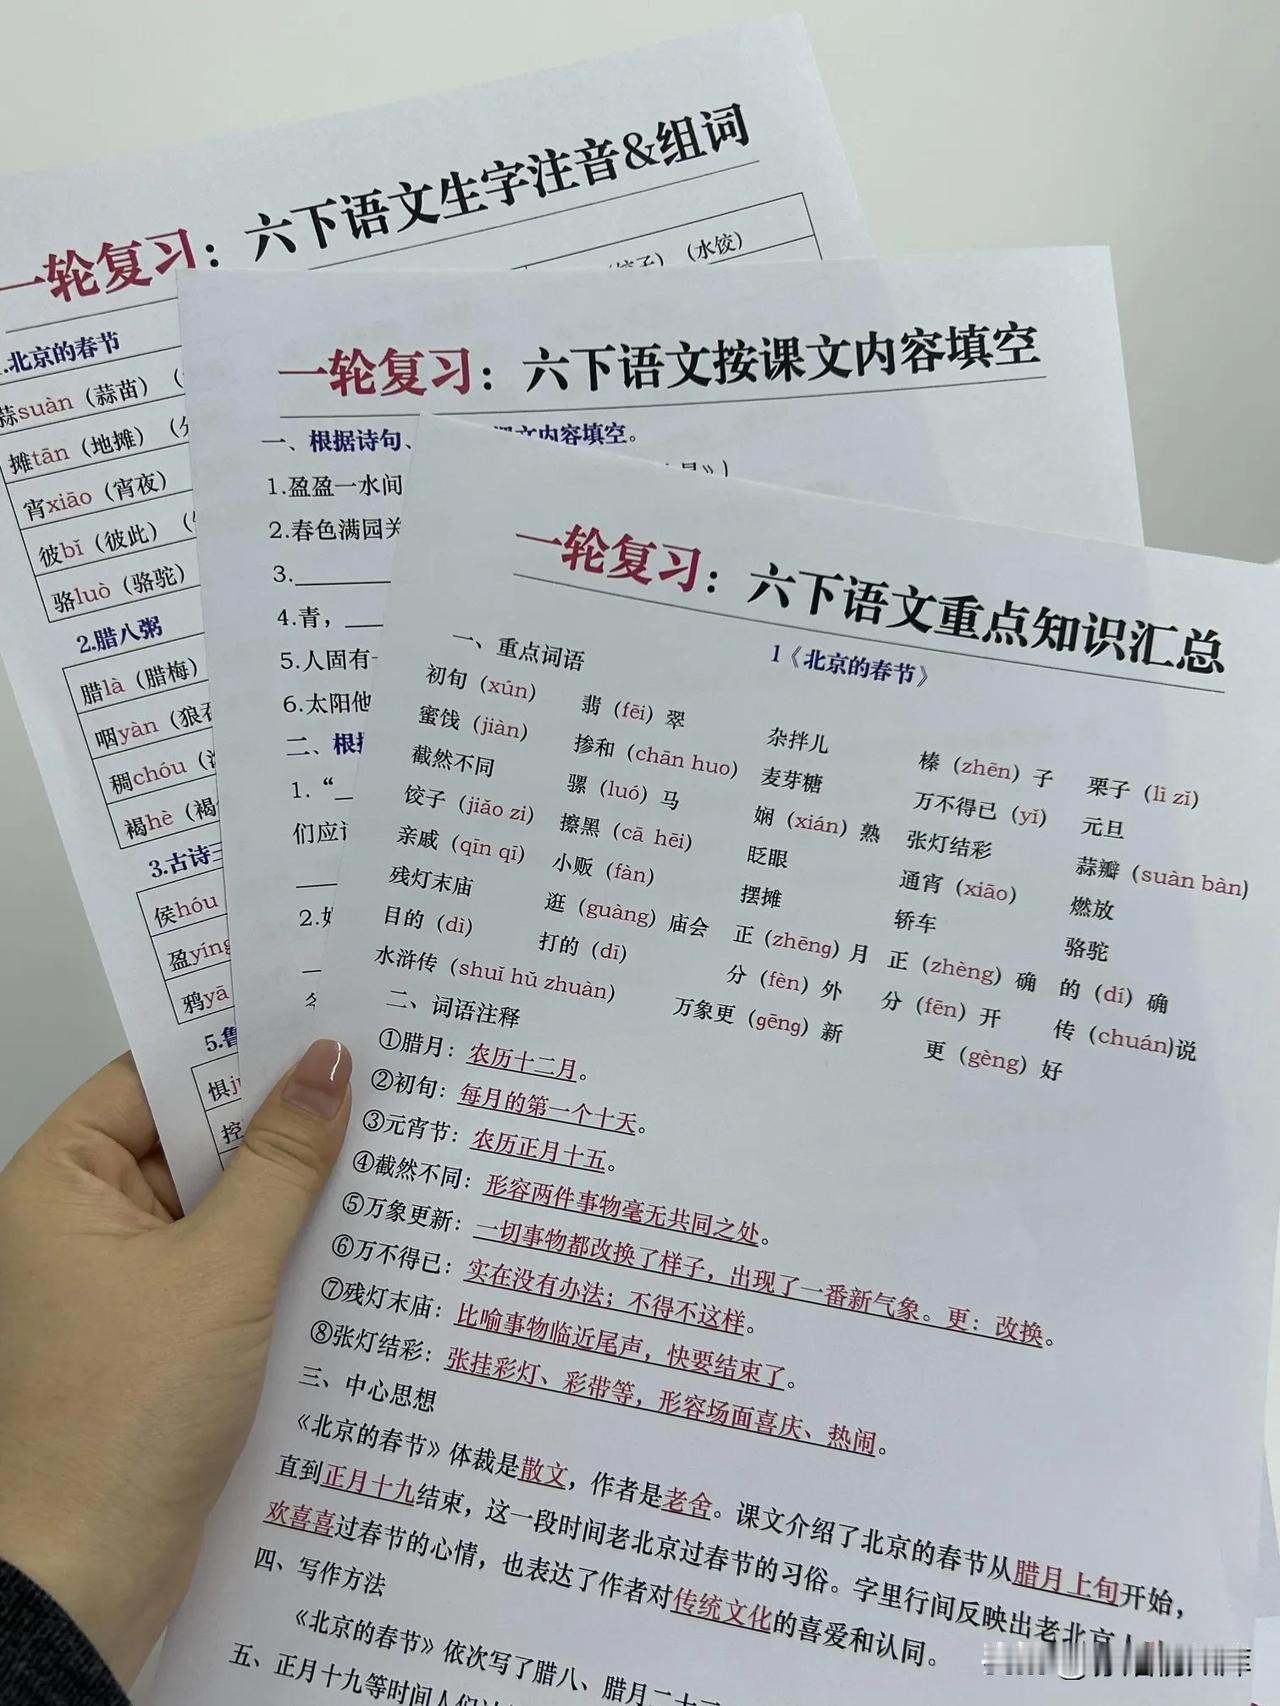 一轮复习：六下语文生字注音&组词
（水饺）
.北京的春节
蒜suàn（蒜苗）（
摊tān（地摊）（
宵xiāo（宵夜）
彼bǐ（彼此）（
骆luò（骆驼）
2.腊八粥
腊là（腊梅）
咽yàn（狼吞
稠chóu（
褐hè（褐
3.古诗三
侯hóu
盈yíng
鸦yā
5.鲁
惧j
控
一轮复习：六下语文按课文内容填空
一、根据诗句、课文内容填空。
1.盈盈一水间
2.春色满园关
3.
4.青，
5.人固有一
6.太阳他
二、根据
1.“
们应该
2.如
一轮复习：六下语文重点知识汇总
1《北京的春节》
一、重点词语
初旬（xún） 翡（fēi）翠 杂拌儿 榛（zhēn）子 栗子（lì zǐ）
蜜饯（jiàn） 掺和（chān huo） 麦芽糖 万不得已（yǐ） 元旦
截然不同 骡（luó）马 娴（xián）熟 张灯结彩 蒜瓣（suàn bàn）
饺子（jiāo zi） 擦黑（cā hēi） 眨眼 通宵（xiāo） 燃放
亲戚（qīn qī） 小贩（fàn） 摆摊 轿车 骆驼
残灯末庙 逛（guàng）庙会 正（zhēng）月 正（zhèng）确 的（dí）确
目的（dì） 打的（dī） 分（fèn）外 分（fēn）开 传（chuán)说
水浒传（shuǐ hǔ zhuàn） 万象更（gēng）新 更（gèng）好
二、词语注释
①腊月：农历十二月。
②初旬：每月的第一个十天。
③元宵节：农历正月十五。
④截然不同：形容两件事物毫无共同之处。
⑤万象更新：一切事物都改换了样子，出现了一番新气象。更：改换。
⑥万不得已：实在没有办法；不得不这样。
⑦残灯末庙：比喻事物临近尾声，快要结束了。
⑧张灯结彩：张挂彩灯、彩带等，形容场面喜庆、热闹。
三、中心思想
《北京的春节》体裁是散文，作者是老舍。课文介绍了北京的春节从腊月上旬开始，
直到正月十九结束，这一段时间老北京过春节的习俗。字里行间反映出老北京人
欢喜喜过春节的心情，也表达了作者对传统文化的喜爱和认同。
四、写作方法
《北京的春节》依次写了腊八、腊月二十三
五、正月十九等时间人们